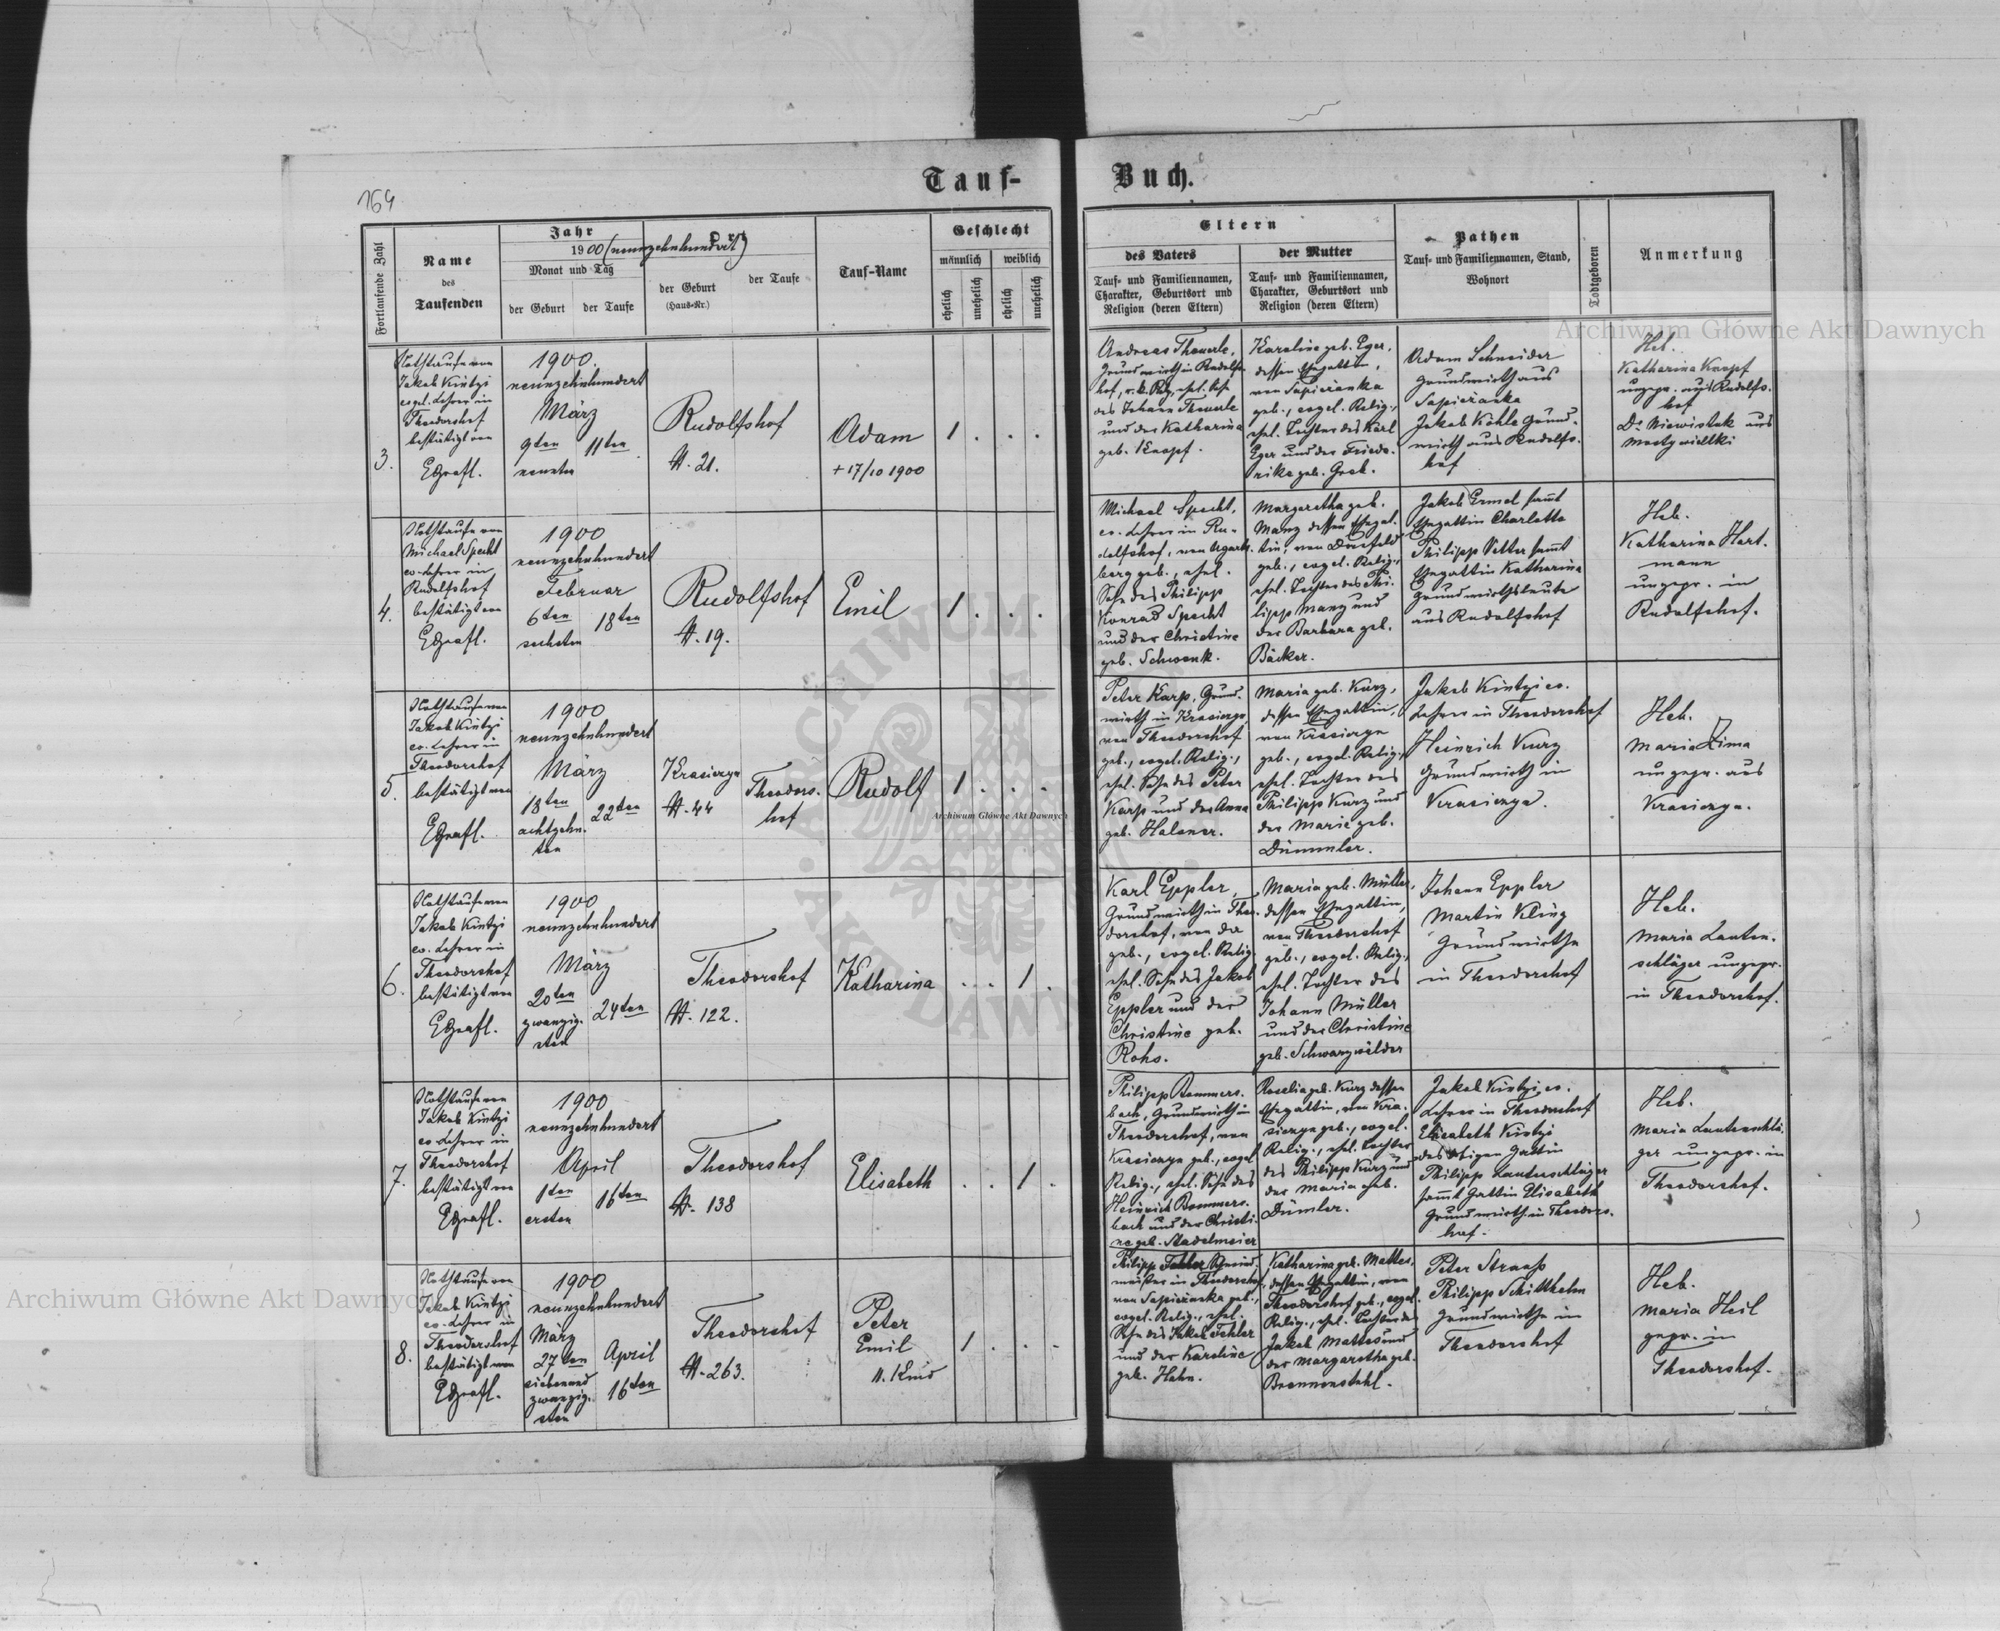 164
Tauf-Buch.
Fortlaufende Zahl
Name
des
Taufenden
Jahr
1900 (neunzehnhundert)
Ort
Monat und Tag
der Geburt
der Taufe
der Geburt
(Haus-Nr.)
der Taufe
Tauf-Name
Geschlecht
männlich
weiblich
ehelich
unehelich
ehelich
unehelich
Eltern
des Vaters
Tauf- und Familiennamen,
Charakter, Geburtsort und
Religion (deren Eltern)
der Mutter
Tauf- und Familiennamen,
Charakter, Geburtsort und
Religion (deren Eltern)
Pathen
Tauf- und Familiennamen, Stand,
Wohnort
Todtgeboren
Anmerkung
3.
Nothtaufe von
Jakob Kintzi
evgel. Lehrer in
Theodorshof
bestätigt von
1900.
neunzehnhundert
März
9ten
neunten
11ten
Rudolfshof
N. 21.
Adam
+ 17/10 1900
1 . . .
Andreas
Grundwirth in Rudolfs-
hof, r. k. Rlg., ehel. Sohn
des Johann
und der Katharina
geb. Knopf.
Karoline geb. Eger,
dessen Ehegattin,
von Sapieżanka
geb., evgel. Relig.,
ehel. Tochter des Karl
Eger und der Friede-
rike geb. Grob.
Adam Schneider
Grundwirth aus
Sapieżanka
Jakob Köhle Grund-
wirth aus Rudolfs-
hof
Heb.
Katharina Knopf
ungepr. aus Rudolfs-
hof
4.
Nothtaufe von
Michael Specht
ev. Lehrer in
Rudolfshof
bestätigt von
1900
neunzehnhundert
Februar
6ten
sechsten
18ten
Rudolfshof
N. 19.
Emil
1 . . .
Michael Specht,
ev. Lehrer in Ru-
dolfshof, von Ugarts-
berg geb., ehel.
Sohn des Philipp
Konrad Specht
und der Christine
geb. Schwenk.
Margaretha geb.
Manz dessen Ehegat-
tin, von Dornfeld
geb., evgel. Relig.,
ehel. Tochter des Phi-
lipp Manz und
der Barbara geb.
Bäcker.
Jakob Ermel sammt
Ehegattin Charlotte
Philipp Vetter sammt
Ehegattin Katharina
Grundwirthsleute
aus Rudolfshof
Heb.
Katharina Hart-
mann
ungepr. in
Rudolfshof.
5.
Nothtaufe von
Jakob Kintzi
ev. Lehrer in
Theodorshof
bestätigt von
1900
neunzehnhundert
März
18ten
achtzehn-
ten
22ten
Krasiczyn
N. 44
Theodors-
hof
Rudolf
1 . . .
Peter Karp, Grund-
wirth in Krasiczyn,
von Theodorshof
geb., evgel. Relig.,
ehel. Sohn des Peter
Karp und der Anna
geb. Halsner.
Maria geb. Kurz,
dessen Ehegattin,
von Krasiczyn
geb., evgel. Relig.,
ehel. Tochter des
Philipp Kurz und
der Marie geb.
Dümmler.
Jakob Kintzi ev.
Lehrer in Theodorshof
Heinrich Kurz
Grundwirth in
Krasiczyn.
Heb.
Maria Zima
ungepr. aus
Krasiczyn.
6.
Nothtaufe von
Jakob Kintzi
ev. Lehrer in
Theodorshof
bestätigt von
1900
neunzehnhundert
März
20ten
zwanzig-
sten
24ten
Theodorshof
N. 122.
Katharina
. . 1 .
Karl Eppler,
Grundwirth in Theo-
dorshof, von da
geb., evgel. Relig.
ehel. Sohn des Jakob
Eppler und der
Christine geb.
Rohs.
Maria geb. Müller,
dessen Ehegattin,
von Theodorshof
geb., evgel. Relig.,
ehel. Tochter des
Johann Müller
und der Christine
geb. Schwarzwälder
Johann Eppler
Martin Kling
Grundwirthe
in Theodorshof
Heb.
Maria Lauten-
schläger ungepr.
in Theodorshof.
7.
Nothtaufe von
Jakob Kintzi
ev. Lehrer in
Theodorshof
bestätigt von
1900
neunzehnhundert
April
1ten
ersten
16ten
Theodorshof
N. 138
Elisabeth
. . 1 .
Philipp Bommers-
bach, Grundwirth in
Theodorshof, von
Krasiczyn geb., evgel.
Relig., ehel. Sohn des
Heinrich Bommers-
bach und der Christi-
ne geb. Stadelmeier
Rosalia geb. Kurz dessen
Ehegattin, von Kra-
siczyn geb., evgel.
Relig., ehel. Tochter
des Philipp Kurz und
der Maria geb.
Dümler.
Jakob Kintzi ev.
Lehrer in Theodorshof
Elisabeth Kintzi
des obigen Gattin
Philipp Lautenschläger
sammt Gattin Elisabeth
Grundwirthe in Theodors-
hof.
Heb.
Maria Lautenschlä-
ger ungepr. in
Theodorshof.
8.
Nothtaufe von
Jakob Kintzi
ev. Lehrer in
Theodorshof
bestätigt von
1900
neunzehnhundert
März
27ten
siebenund
zwanzig-
sten
April
16ten
Theodorshof
N. 263.
Peter
Emil
11. Kind
1 . . .
Philipp Fehler Schmied-
meister in Theodorshof,
von Sapieżanka geb.,
evgel. Relig., ehel.
Sohn des Jakob Fehler
und der Karoline
geb. Hahn.
Katharina geb. Mattes,
dessen Ehegattin, von
Theodorshof geb., evgel.
Relig., ehel. Tochter des
Jakob Mattes und
der Margaretha geb.
Brennenstuhl.
Peter Strauß
Philipp Schitthelm
Grundwirthe in
Theodorshof
Heb.
Maria Heil
gepr. in
Theodorshof.
Archiwum Główne Akt Dawnych
Archiwum Główne Akt Dawnych
Archiwum Główne Akt Dawnych